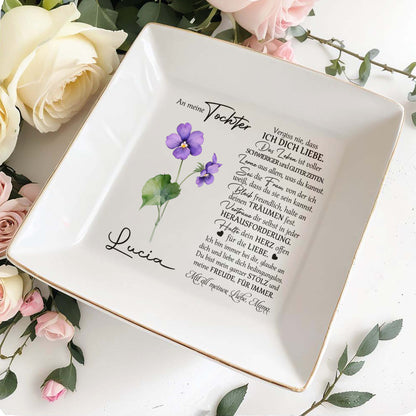 An meine Tochter
Lucia
Vergiss nie, dass
ICH DICH LIEBE.
Das Leben ist voller
SCHWIERIGER UND GUTER ZEITEN.
Lerne aus allem, was du kannst.
Sei die Frau von der ich
weiß, dass du sie sein kannst.
Bleib freundlich, halte an
deinen TRÄUMEN fest.
Vertraue dir selbst in jeder
HERAUSFORDERUNG.
Halte dein HERZ offen
für die LIEBE.
Ich bin immer bei dir, glaube an
dich und liebe dich bedingungslos.
Du bist mein ganzer STOLZ und
meine FREUDE. FÜR IMMER.
Mit all meiner Liebe, Mama.